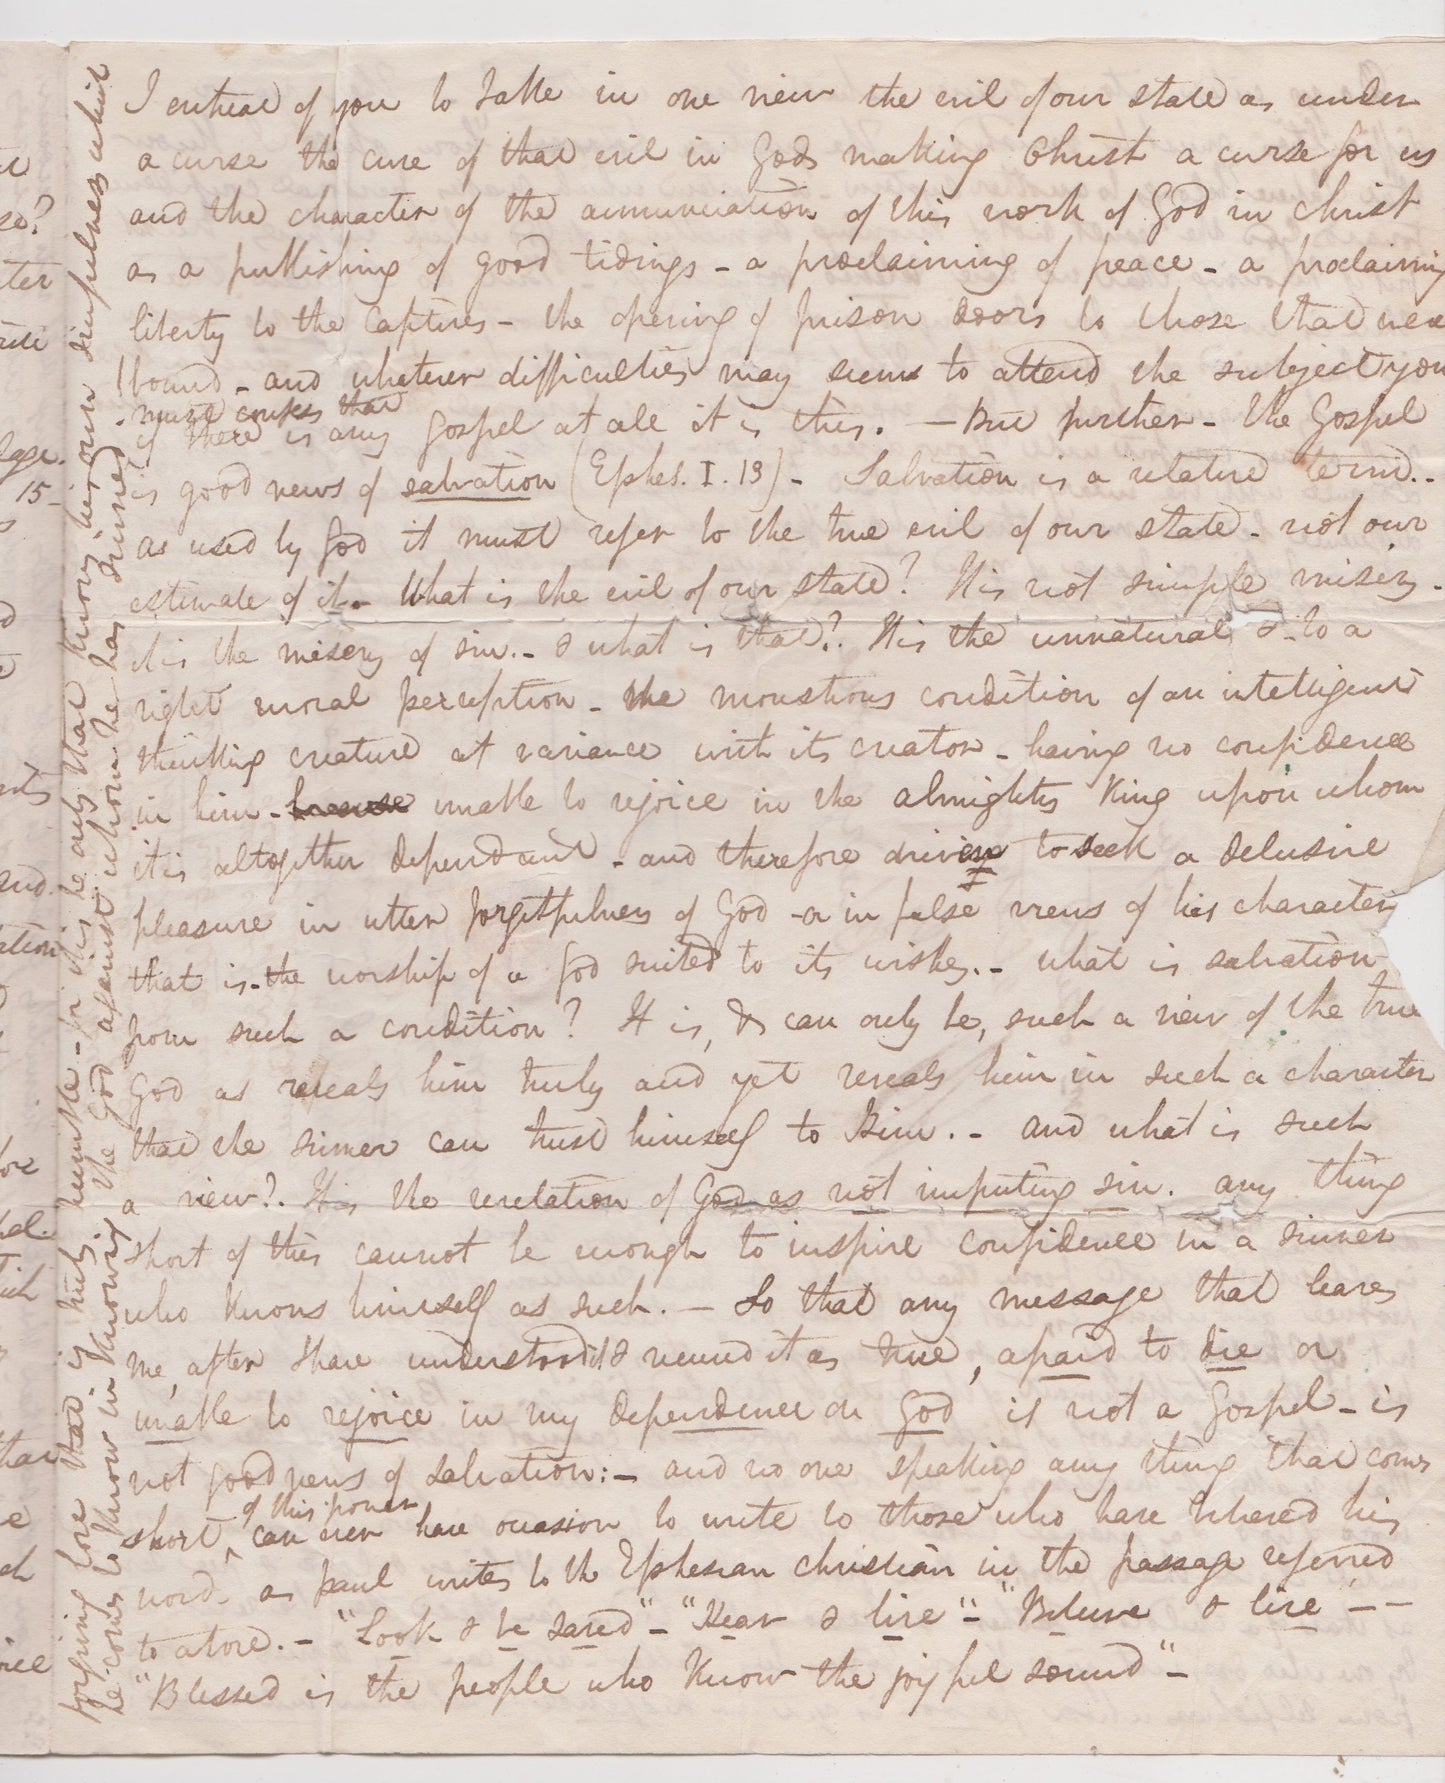 I entreat of you to take in one view the evil of our state as under
a curse the cure of that evil in Gods making Christ a curse for us
and the character of the annunciation of this work of God in Christ
as a publishing of good tidings - a proclaiming of peace - a proclaiming
liberty to the Captives - the opening of prison doors to those that were
bound - and whatever difficulties may seem to attend the subject you
must confess that
if there is any Gospel at all it is this. - But further - the Gospel
is good news of salvation (Ephes. I. 13) - Salvation is a relative term..
as used by God it must refer to the true evil of our state - not our
estimate of it - What is the evil of our state? It is not simple misery -
it is the misery of sin. - & what is that? It is the unnatural & - to a
right moral perception - the monstrous condition of an intelligent
thinking creature at variance with its creator - having no confidence
in him - because unable to rejoice in the almighty King upon whom
it is altogether dependant - and therefore driven to seek a delusive
pleasure in utter forgetfulness of God - or in false views of his character
that is - the worship of a God suited to its wishes. - what is salvation
from such a condition? It is, & can only be, such a view of the true
God as reveals him truly and yet reveals him in such a character
that the sinner can trust himself to Him. - and what is such
a view? It is the revelation of God as not imputing sin. any thing
short of this cannot be enough to inspire confidence in a sinner
who knows himself as such. - So that any message that leaves
me, after I have understood it & received it as true, afraid to die or
unable to rejoice in my dependence on God is not a Gospel - is
not good news of salvation: - and no one speaking any thing that comes
of this power
short ^ can ever have occasion to write to those who have believed his
word - as Paul writes to the Ephesian christian in the passage referred
to above. - "Look & be saved" - "Hear & live" - "Believe & live - -
"Blessed is the people who know the joyful sound" -
forgiving love that is truly humble - for it is he only that knows his own sinfulness whil
he comes to know in knowing the God against whom he has sinned